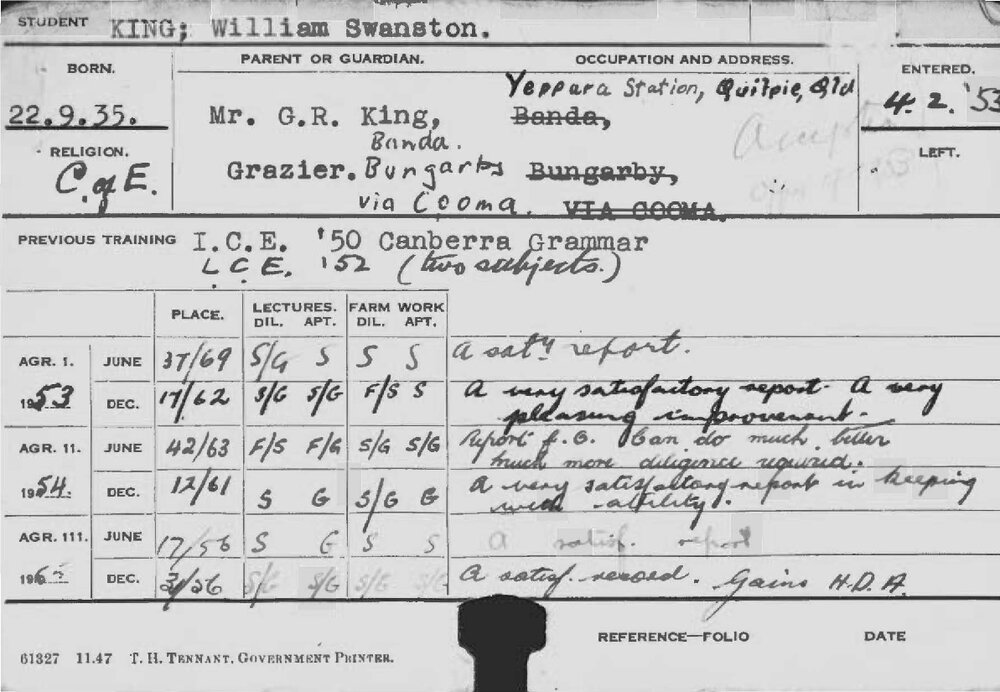 STUDENT KING; William Swanston.
BORN. PARENT OR GUARDIAN. OCCUPATION AND ADDRESS. ENTERED.
Yeppara Station, Quilpie, Qld
22.9.35. Mr. G.R. King, Banda, 4.2.'53
Banda.
RELIGION. LEFT.
C of E. Grazier. Bungarby Bungarby,
via Cooma. VIA COOMA.
PREVIOUS TRAINING I.C.E. '50 Canberra Grammar
L C E. '52 (two subjects.)
PLACE. LECTURES. FARM WORK
DIL. APT. DIL. APT.
AGR. 1. JUNE 37/69 S/G S S S A saty report.
1953 DEC. 17/62 S/G S/G F/S S A very satisfactory report. A very
pleasing improvement.
AGR. 11. JUNE 42/63 F/S F/G S/G S/G Report f.G. Can do much better
much more diligence required.
1954. DEC. 12/61 S G S/G G A very satisfactory report in keeping
with ability.
AGR. 111. JUNE 17/56 S G S S A satisf. report
DEC. S/G S/G S/G S/G A satisf. record. Gains H.D.A.
REFERENCE—FOLIO DATE
61327 11.47 T. H. TENNANT, GOVERNMENT PRINTER.